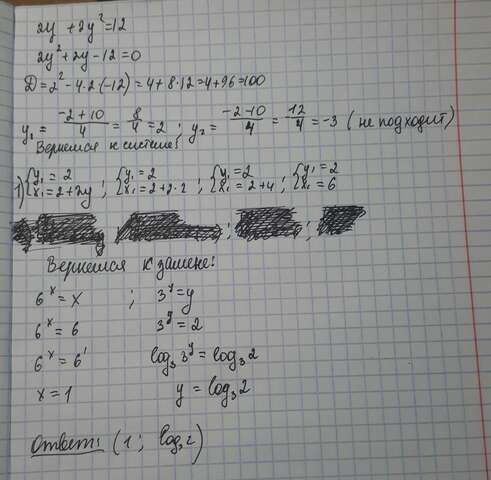 2y + 2y² = 12
2y² + 2y - 12 = 0
D = 2² - 4·2(-12) = 4 + 8·12 = 4 + 96 = 100
y₁ = (-2+10)/4 = 8/4 = 2 ; y₂ = (-2-10)/4 = 12/4 = -3 (не подходит)
Вернемся к системе:
1) { y₁ = 2 ; { y₁ = 2 ; { y₁ = 2 ; { y₁ = 2
{ x₁ = 2+2y ; { x₁ = 2+2·2 ; { x₁ = 2+4 ; { x₁ = 6
Вернемся к замене:
6ˣ = x ; 3ʸ = y
6ˣ = 6 3ʸ = 2
6ˣ = 6¹ log₃ 3ʸ = log₃ 2
x = 1 y = log₃ 2
Ответ: (1 ; log₃ 2)